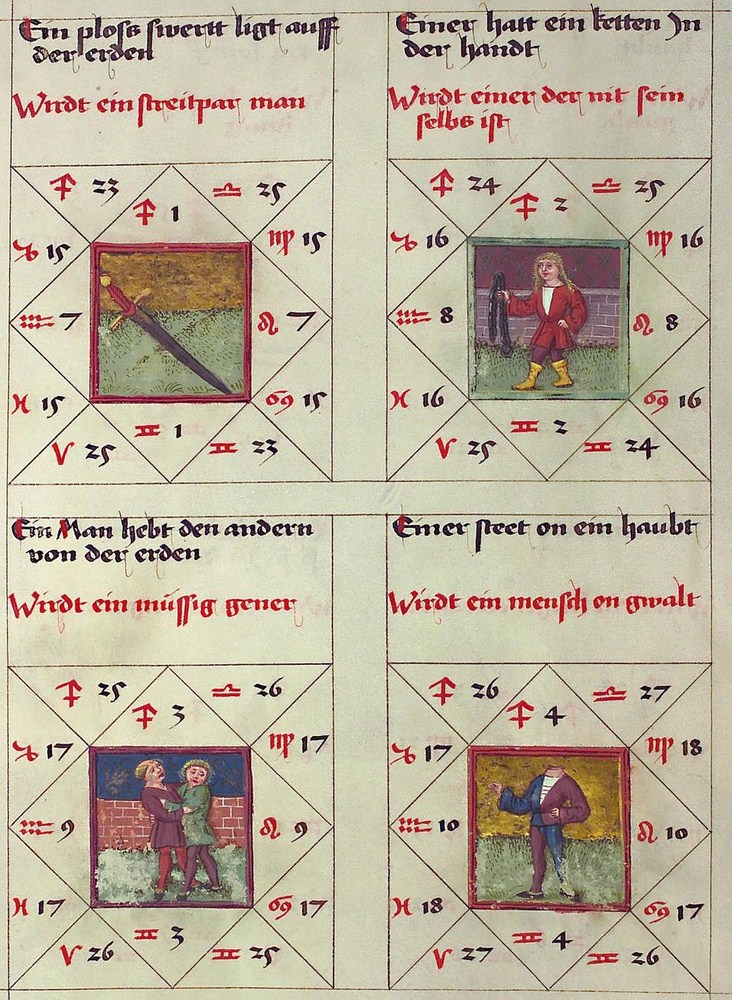 Ein ploss swertt ligt auff
der erden
Wirdt ein streitpar man
♐ 23 ♎ 25
♐ 1
♑ 15 ♍ 15
♒ 7 ♌ 7
♓ 15 ♋ 15
♊ 1
♈ 25 ♊ 23
Einer hatt ein ketten Jn
der handt
Wirdt einer der nit sein
selbs ist
♐ 24 ♎ 25
♐ 2
♑ 16 ♍ 16
♒ 8 ♌ 8
♓ 16 ♋ 16
♊ 2
♈ 25 ♊ 24
Ein Man hebt den andern
von der erden
Wirdt ein müssig gener
♐ 25 ♎ 26
♐ 3
♑ 17 ♍ 17
♒ 9 ♌ 9
♓ 17 ♋ 17
♊ 3
♈ 26 ♊ 25
Einer steet on ein haubt
Wirdt ein mensch on gwalt
♐ 26 ♎ 27
♐ 4
♑ 17 ♍ 18
♒ 10 ♌ 10
♓ 18 ♋ 17
♊ 4
♈ 27 ♊ 26